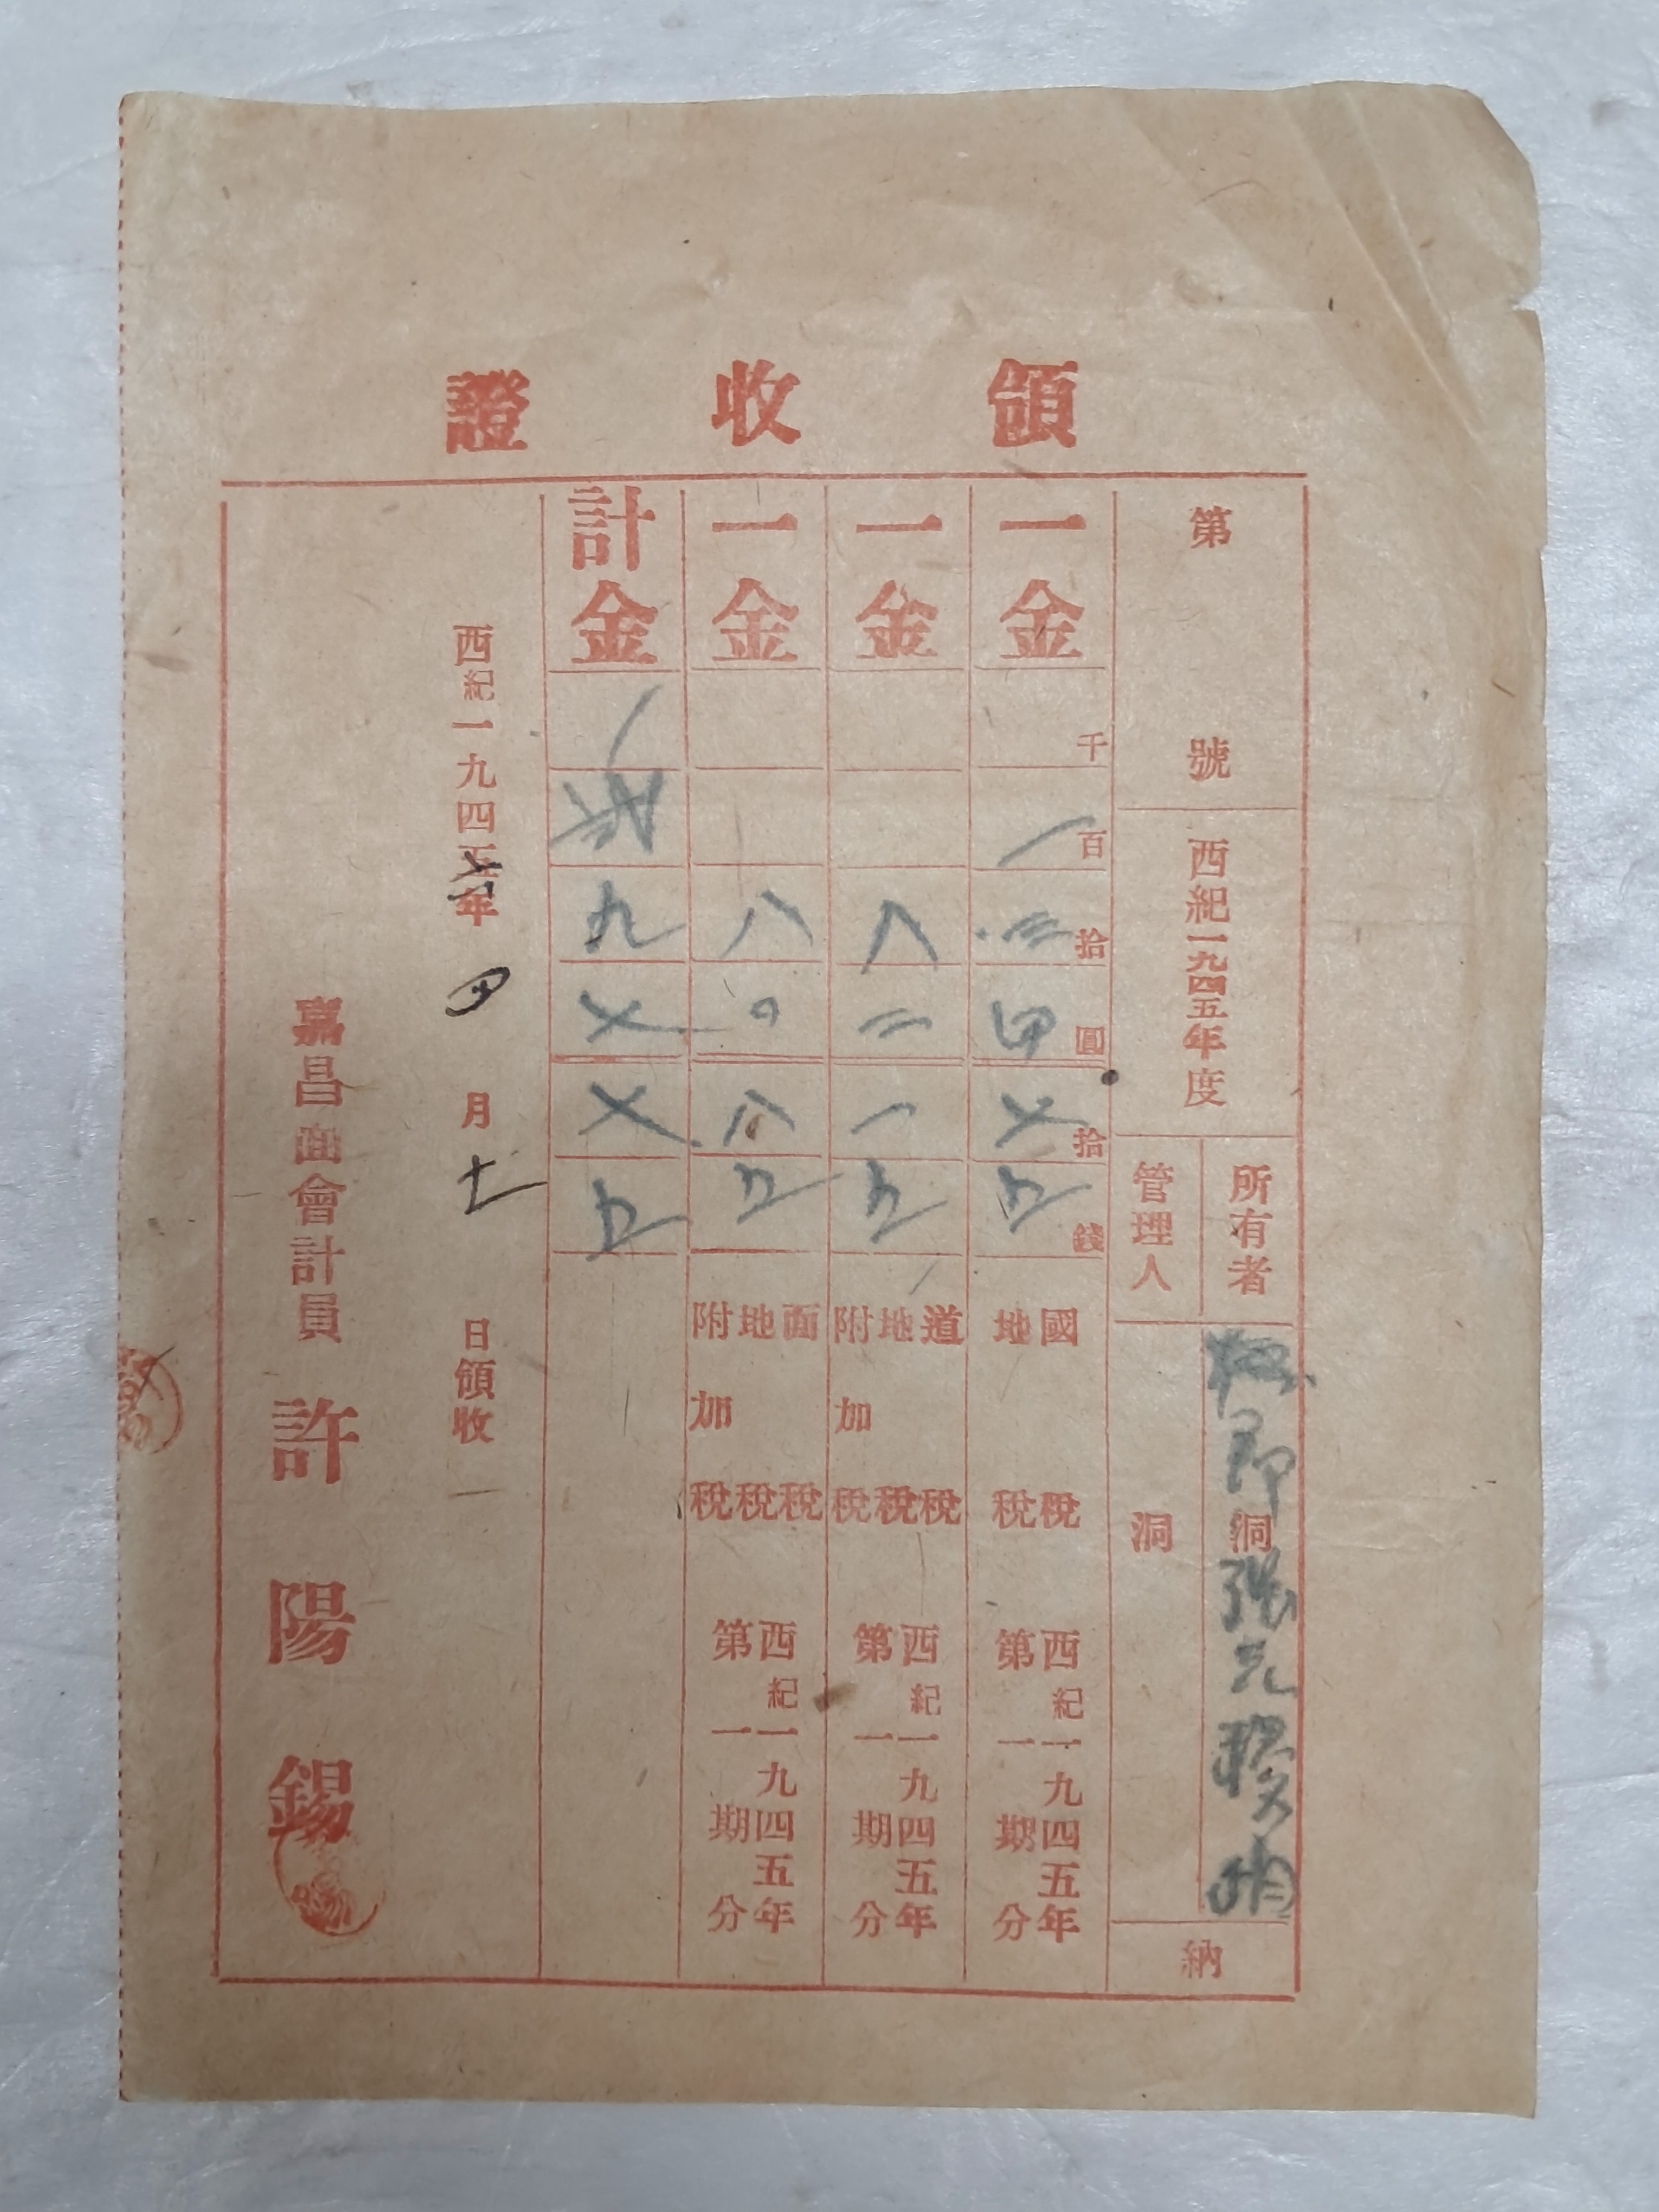 領收證
第 號 西紀一九四五年度
所有者 洞 張元
管理人 洞
納
一金 千 一百 三拾 四圓 七拾 五錢 國稅 地稅 西紀一九四五年 第一期分
一金 八 二 一 五 道稅 地稅 附加稅 西紀一九四五年 第一期分
一金 八 〇 八 五 面稅 地稅 附加稅 西紀一九四五年 第一期分
計金 貳 九 七 七 五
西紀一九四六年 四月 七日領收
嘉昌面會計員 許陽錫